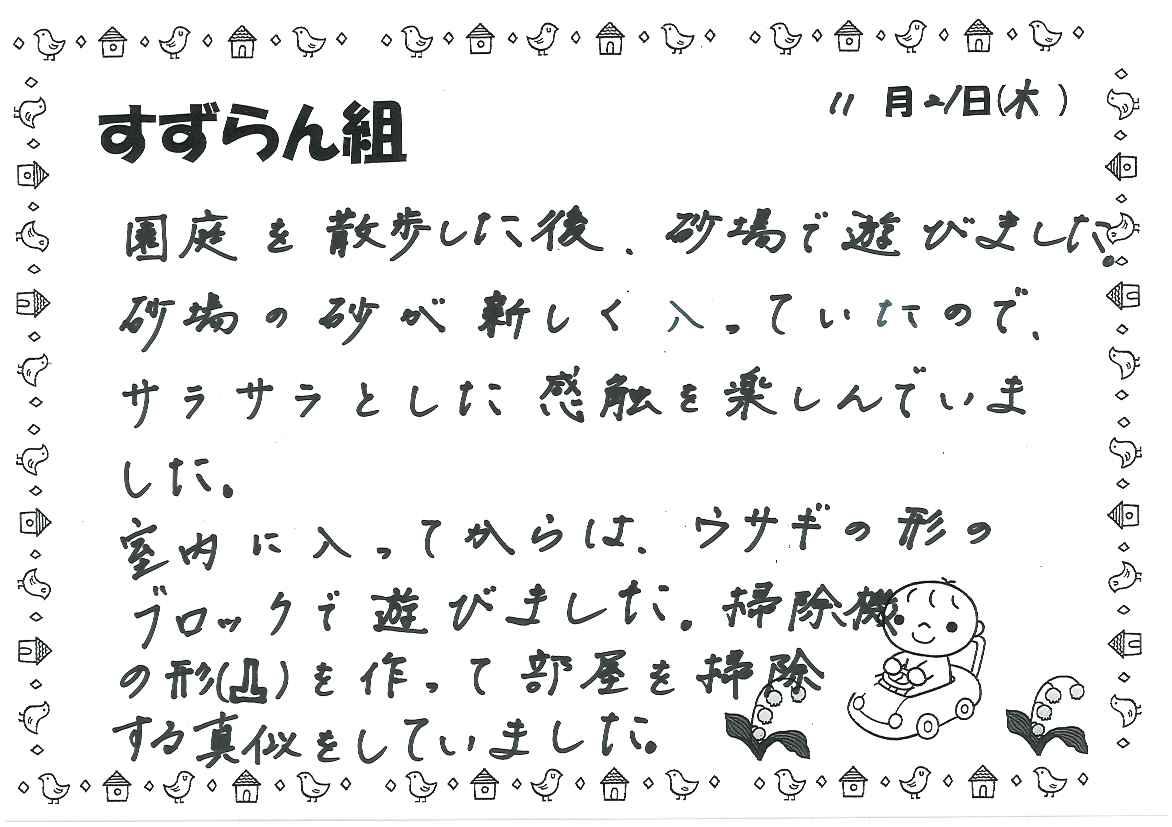 すずらん組
11月21日(木)
園庭を散歩した後、砂場で遊びました。
砂場の砂が新しく入っていたので、
サラサラとした感触を楽しんでいま
した。
室内に入ってからは、ウサギの形の
ブロックで遊びました。掃除機
の形(凸)を作って部屋を掃除
する真似をしていました。